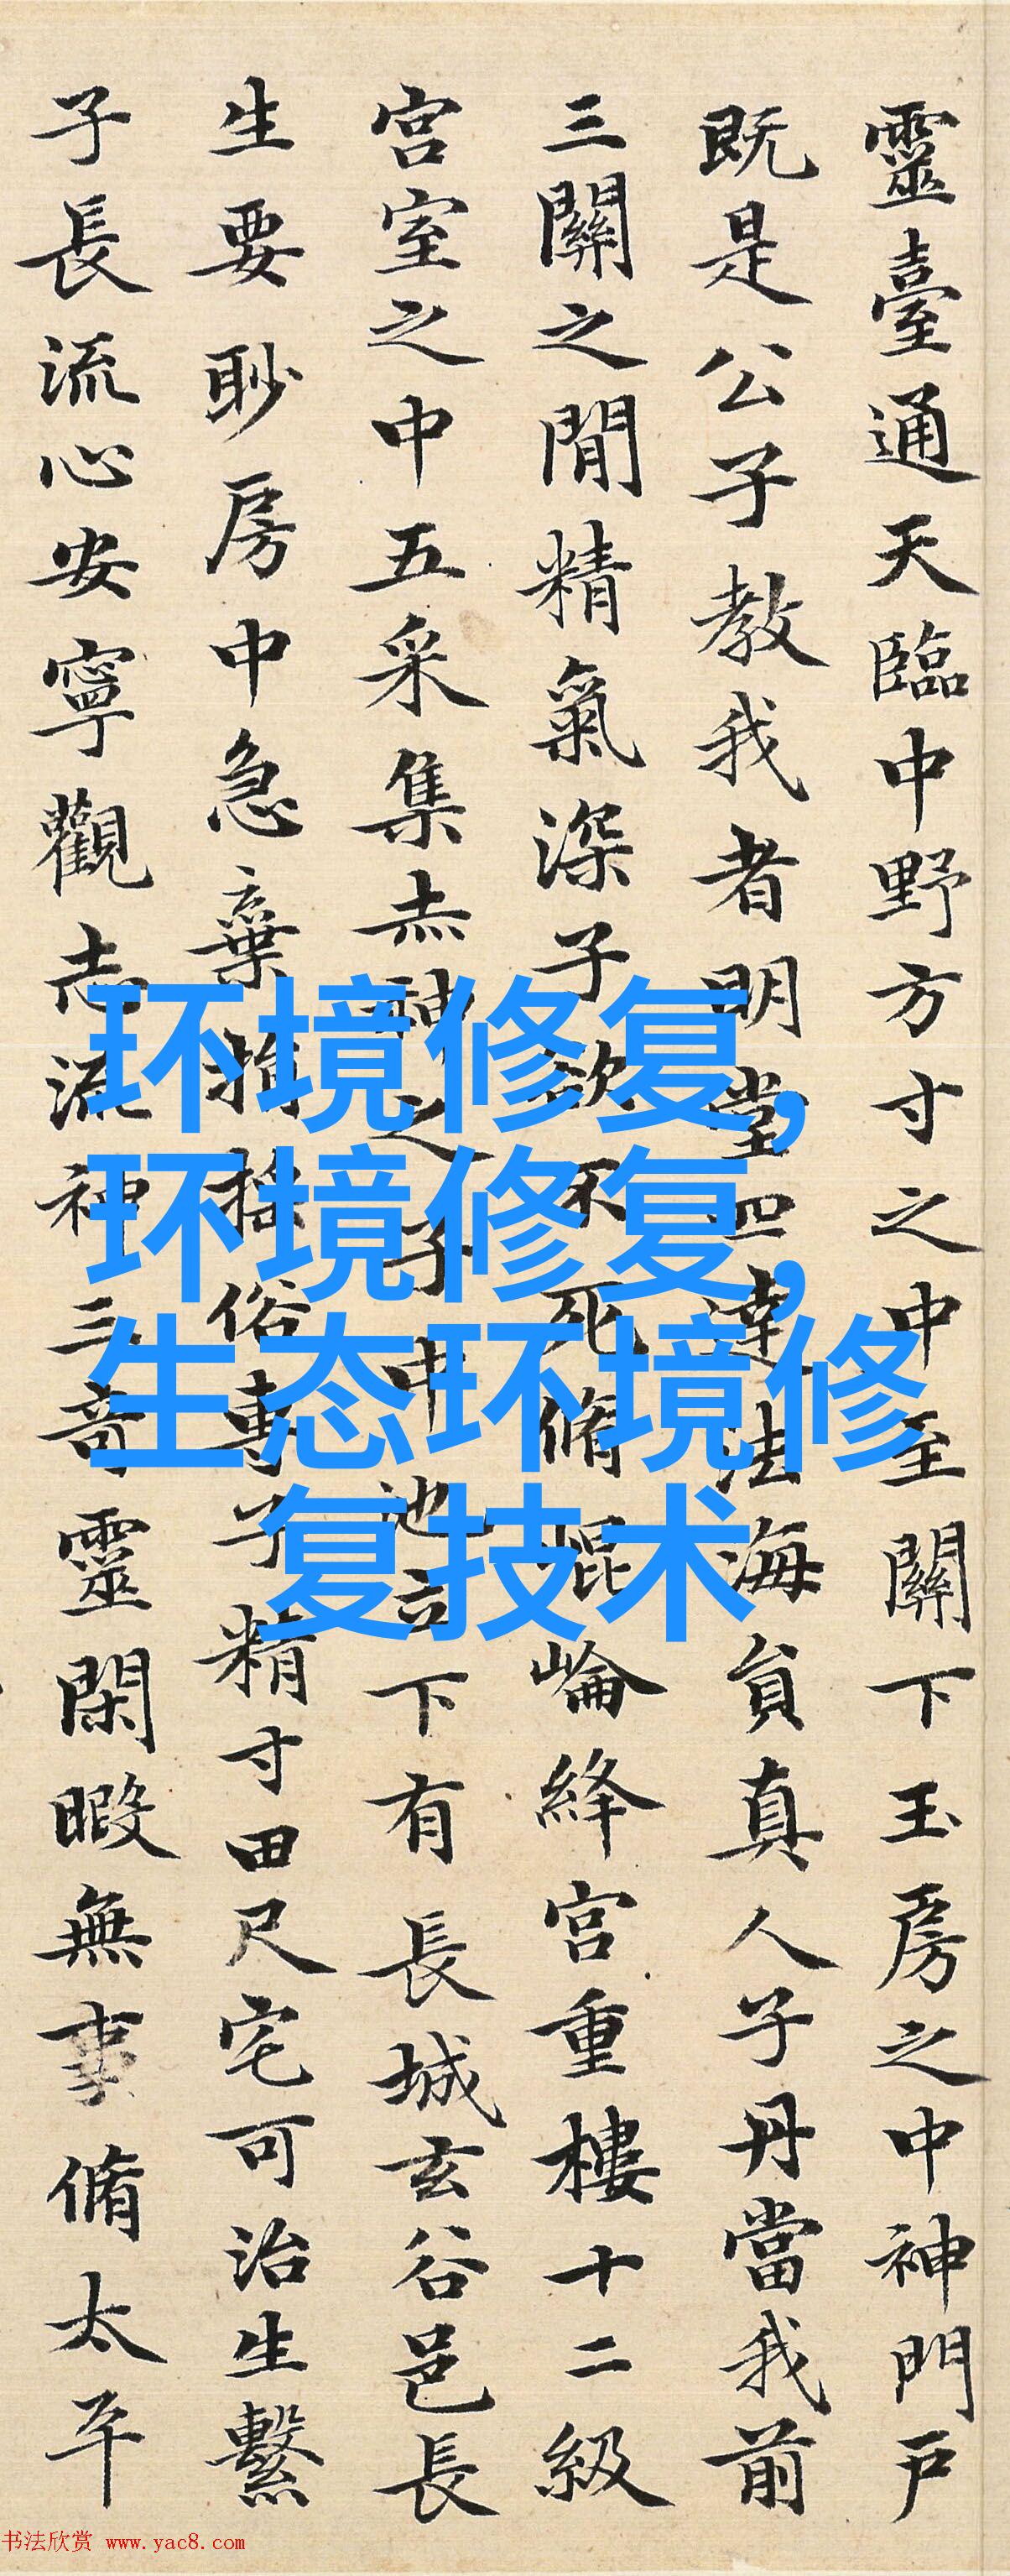 靈臺通天臨中野方寸之中至關下玉房之中神門戶
既是公子教我者明堂四達法海貟真人子丹當我前
三關之閒精氣深子欲不死脩崐崘絳宮重樓十二級
宮室之中五采集赤神之子中池立下有長城玄谷邑長
生要眇房中急棄捐搖俗專子精寸田尺宅可治生繫
子長流心安寧觀志流神三奇靈閑暇無事脩太平
环境修复,
环境修复,
生态环境修
复技术
书法欣赏 www.yac8.com